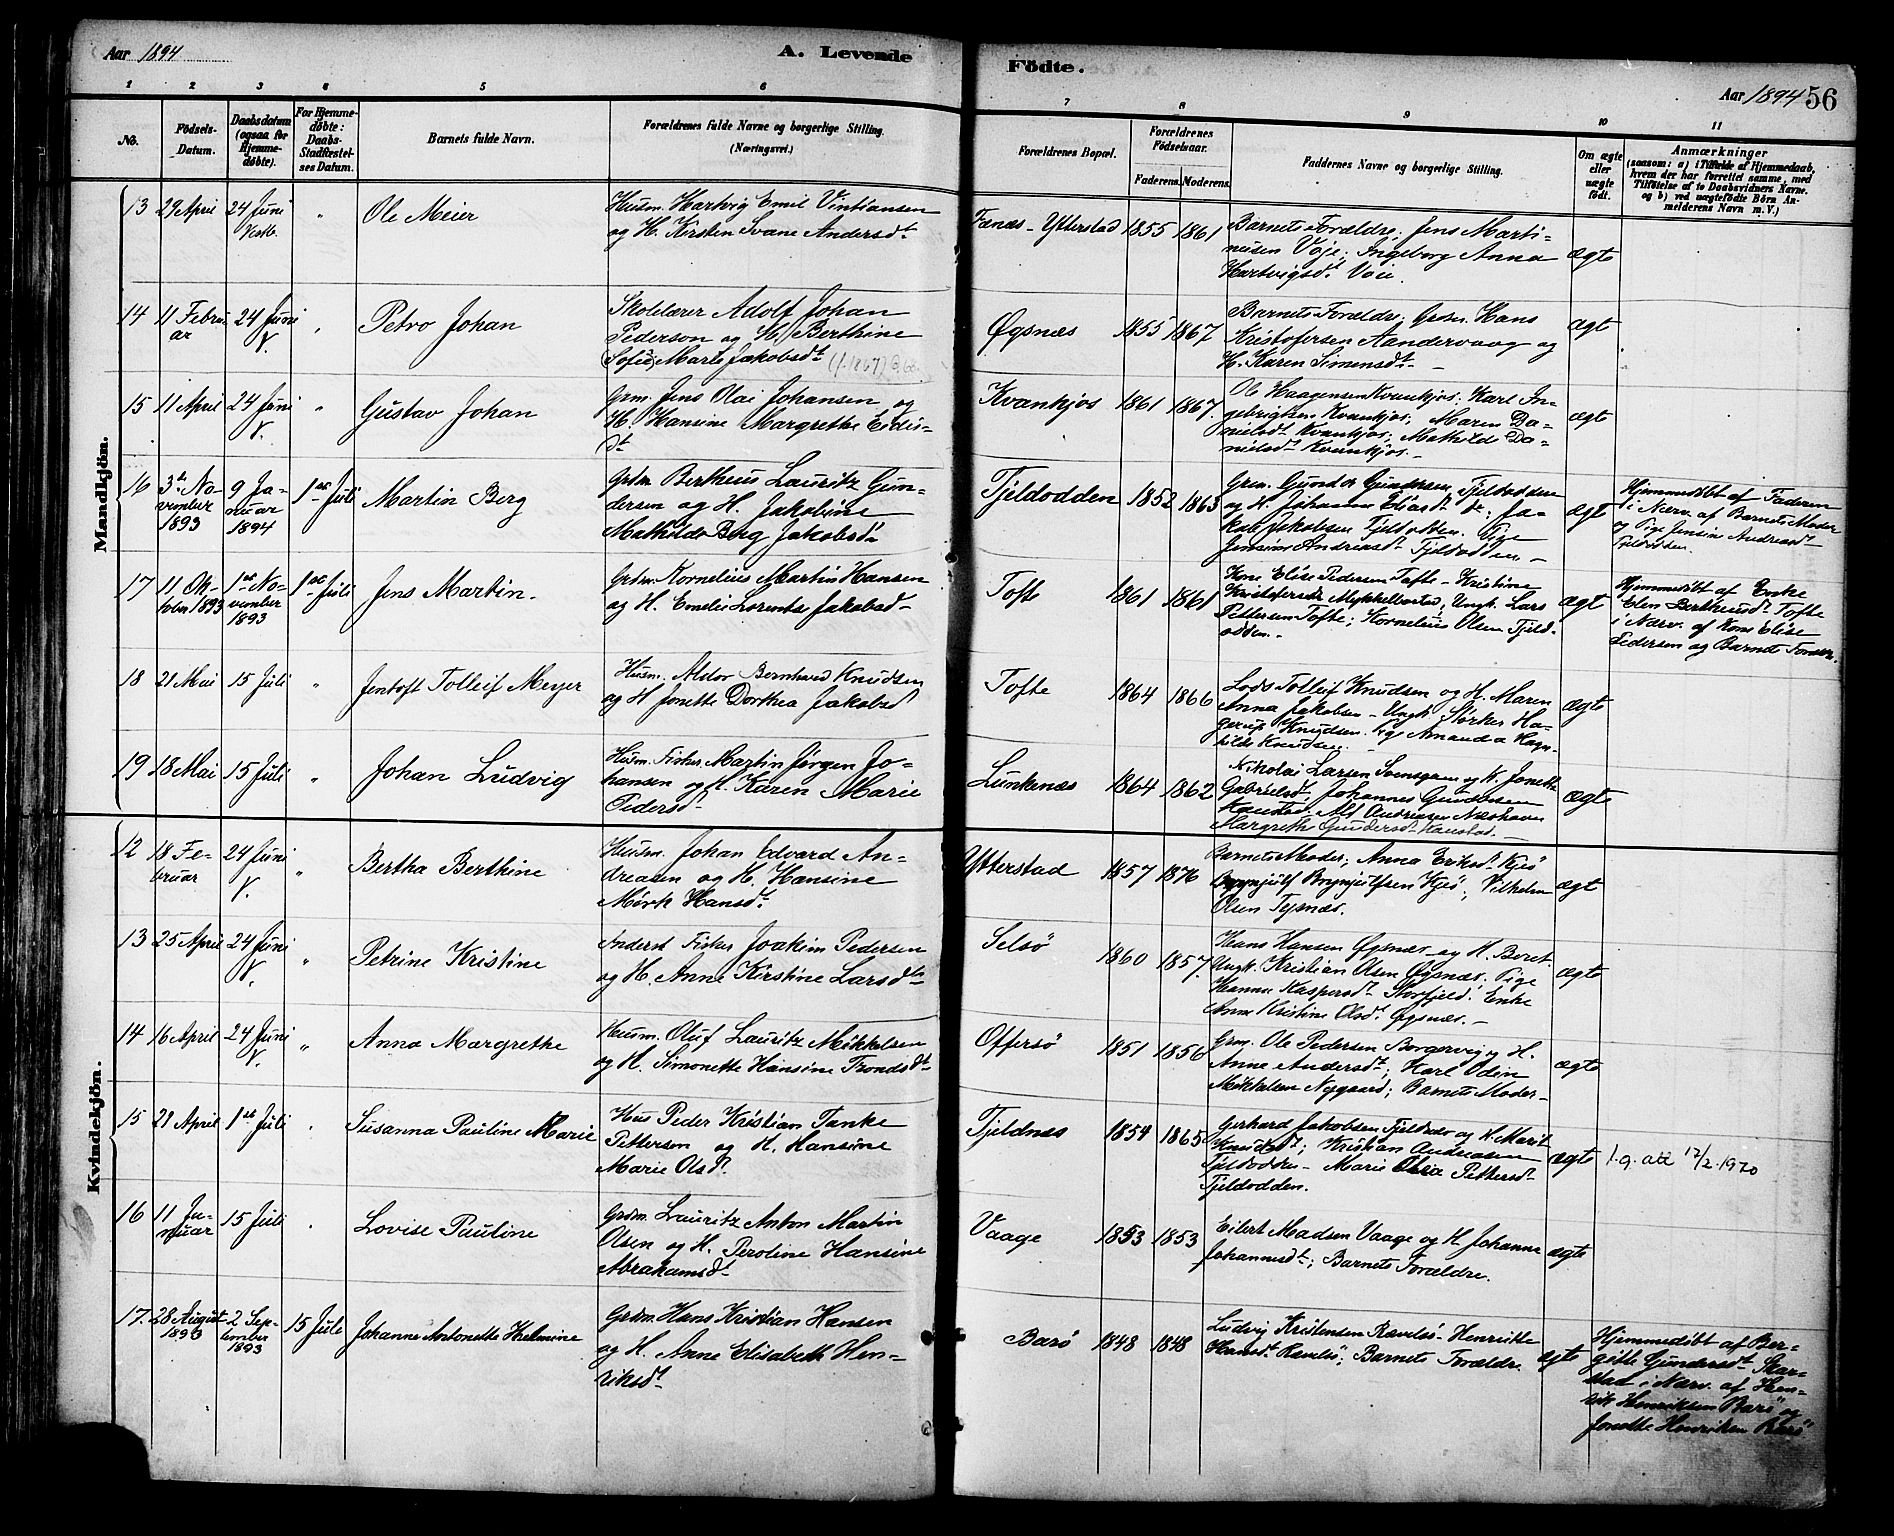 Aar 1894
A. Levende
Fødte.
Aar 1894 56
1 2 3 4 5 6 7 8 9 10 11
No.
Fødsels-
Datum.
Daabsdatum
(ogsaa for
Hjemme-
døbte).
For Hjemme-
døbte:
Daabs-
Stadfæstel-
ses Datum.
Barnets fulde Navn.
Forældrenes fulde Navne og borgerlige Stilling.
(Næringsvei.)
Forældrenes Bopæl.
Forældrenes
Fødselsaar.
Faderens. Moderens.
Faddernes Navne og borgerlige Stilling.
Om ægte
eller
uægte
født.
Anmærkninger
(saasom: a) i Tilfælde af Hjemmedaab,
hvem der har forrettet samme, med
Tilføielse af to Daabsvidners Navne,
og b) ved uægtefødte Børn An-
melderens Navn m. V.)
Mandkjøn.
13 29 April 24 Juni " Ole Meier
Husm. Hartvig Emil Vintiansen
og H. Kirsten Svane Andersdt
Fanæs-Ytterstad 1855 1861
Barnets Forældre; Jens Marti-
niusen Voje; Ingeborg Anna
Hartvigsdt Voie
ægte
14 11 Febru-
ar 24 Juni
V. " Petro Johan
Skolelærer Adolf Johan
Pederson og H. Berthine
(Sofie) Marte Jakobsdt (f. 1867)
Øgsnæs 1855 1867
Barnets Forældre; Hans
Kristofersen Aandervaag og
H. Karen Simensdt
ægt
15 11 April 24 Juni
V. " Gustav Johan
Grm. Jens Olai Johansen og
H. Hansine Margrethe Eidis-
dt
Kvankjøs 1861 1867
Ole Haagensen Kvankjøs; Karl In-
gebrigtsen Kvankjøs; Maren Da-
nielsdt Kvankjøs; Mathilde Da-
nielsdt Kvankjøs.
ægt
16 3die No-
vember
1893 9 Ja-
nuar
1894 1ste Juli Martin Berg
Grdm Bertheus Lauritz Gun-
dersen og H. Jakobine
Mathilde Berg Jakobsdt
Tjeldodden 1852 1863
Grm. Gunder Gundersen Tjeldodden
og H. Johanna Eliasdt; Ja-
kob Jakobsen Tjeldodden. Pige
Jensine Andreasdt Tjeldodden
ægt
Hjemmedøbt af Faderen
i Nærv. af Barnets Moder
og Pige Jensine Andreasdt
Tjeldodden.
17 11 Ok-
tober 1893 1ste No-
vember
1893 1ste Juli Jens Martin.
Grdm. Kornelius Martin Hansen
og H. Emelie Lorentse Jakobsd
Tofte 1861 1861
Kone Elise Pedersen Tofte - Kristine
Kristofersdt Mykkelbostad; Ungk. Lars
Pettersen Tofte; Kornelius Olsen Tjeld-
odden.
ægt
Hjemmedøbt af Enke
Elen Bertheusdt Tofte
i Nærv. af Kone Elise
Pedersen og Barnets Forældre.
18 21 Mai 15 Juli " Jentoft Tolleif Meyer
Husm. Aldor Bernhard Knudsen
og H Jonette Dorthea Jakobsd
Tofte 1864 1866
Lods Tolleif Knudsen og H. Maren
Anna Jakobsen - Ungk Størker Ha-
gerup Knudsen. Pge Amanda Ragn-
hilde Knudsen.
ægte
19 18 Mai 15 Juli " Johan Ludvig
Husm. Fisker Martin Jørgen Jo-
hansen og H. Karen Marie
Pedersd
Lunkenæs 1864 1862
Nikolai Larsen Svensgam og K. Jonette
Gabrielsdt Johannes Gundersen
Kanstad Alf Andreasen Næshavn
Margrethe Gundersdt Kanstad
ægte
Kvindekjøn.
12 18 Fe-
bruar 24 Juni
V. " Bertha Berthine
Husm. Johan Edvard An-
dreasen og H. Hansine
Mørk Hansdt
Ytterstad 1857 1876
Barnets Moder; Anna Eriksdt Kjøs
Brynjulf Brynjulfsen Kjøs; Vilhelm
Olsen Tejsnæs.
ægt
13 25 April 24 Juni
V. " Petrine Kristine
Anderst Fisker Joakim Pedersen
og H. Anne Kirstine Larsdt
Selsö 1860 1857
Hans Hansen Øgsnæs og H. Beret.
Ungk. Kristian Olsen Øgsnæs; Pige
Hanna Kaspersdt Storfjeld; Enke
Anne Kristine Olsdt Øgsnæs.
ægte
14 16 April 24 Juni
V. " Anna Margrethe
Husm. Oluf Lauritz Mikkelsen
og H. Simonette Hansine Trondsdt
Offersö 1851 1856
Grm. Ole Pedersen Borgervig og H.
Anne Andersdt; Karl Odin
Mikkelsen Nygaard; Barnets Moder
ægte
15 21 April 1ste Juli Susanna Pauline Marie
Hus Peder Kristian Tanke
Pettersen og H. Hansine
Marie Olsd.
Tjeldnæs 1854 1865
Gerhard Jakobsen Tjeldnæs og H. Marit
Knudsdt; Kristian Andreasen
Tjeldodden - Marie Olea Pettersdt
Tjeldodden.
ægte
1.g. att 17/2 1970
16 11 Ja-
nuar 15 Juli Lovise Pauline
Grdm. Lauritz Anton Martin
Olsen og H. Peroline Hansine
Abrahamsdt
Vaage 1853 1853
Eilert Madsen Vaage og H Johanne
Johannesdt; Barnets Forældre.
ægte
17. 28 August
1893 2 Sep-
tember
1893 15 Juli Johanne Antonette Helmine
Grdm. Hans Kristian Hansen
og H. Anne Elisabeth Hen-
riksdt
Barø 1848 1848
Ludvig Kristensen Rævelsö - Henrikke
Hansdt Rævelsö; Barnets Forældre.
ægte
Hjemmedöbt af Ber-
gitte Gundersdt Skar-
stad i Nærv. af Hen-
rik Henriksen Barö og
Jonette Henriksen Barö